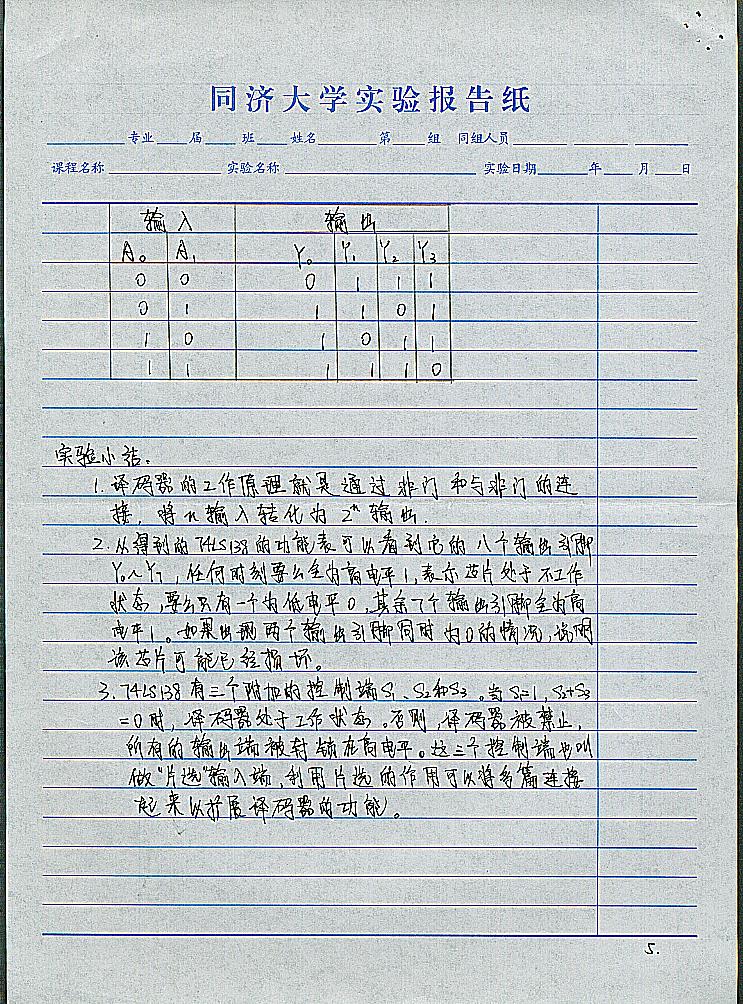 同济大学实验报告纸
专业 届 班 姓名 第 组 同组人员
课程名称 实验名称 实验日期 年 月 日
输入 输出
A₀ A₁ Y₀ Y₁ Y₂ Y₃
0 0 0 1 1 1
0 1 1 1 0 1
1 0 1 0 1 1
1 1 1 1 1 0
实验小结.
1. 译码器的工作原理就是通过非门和与非门的连
接,将n输入转化为2ⁿ输出.
2. 从得到的74LS138的功能表可以看到它的八个输出引脚
Y₀~Y₇,任何时刻要么全为高电平1,表示芯片处于不工作
状态,要么只有一个为低电平0,其余7个输出引脚全为高
电平1。如果出现两个输出引脚同时为0的情况,说明
该芯片可能已经损坏。
3. 74LS138有三个附加的控制端S₁、S₂和S₃。当S₁=1,S₂+S₃
=0时,译码器处于工作状态。否则,译码器被禁止,
所有的输出端被封锁在高电平。这三个控制端也叫
做"片选"输入端,利用片选的作用可以将多篇连接
起来以扩展译码器的功能。
5.